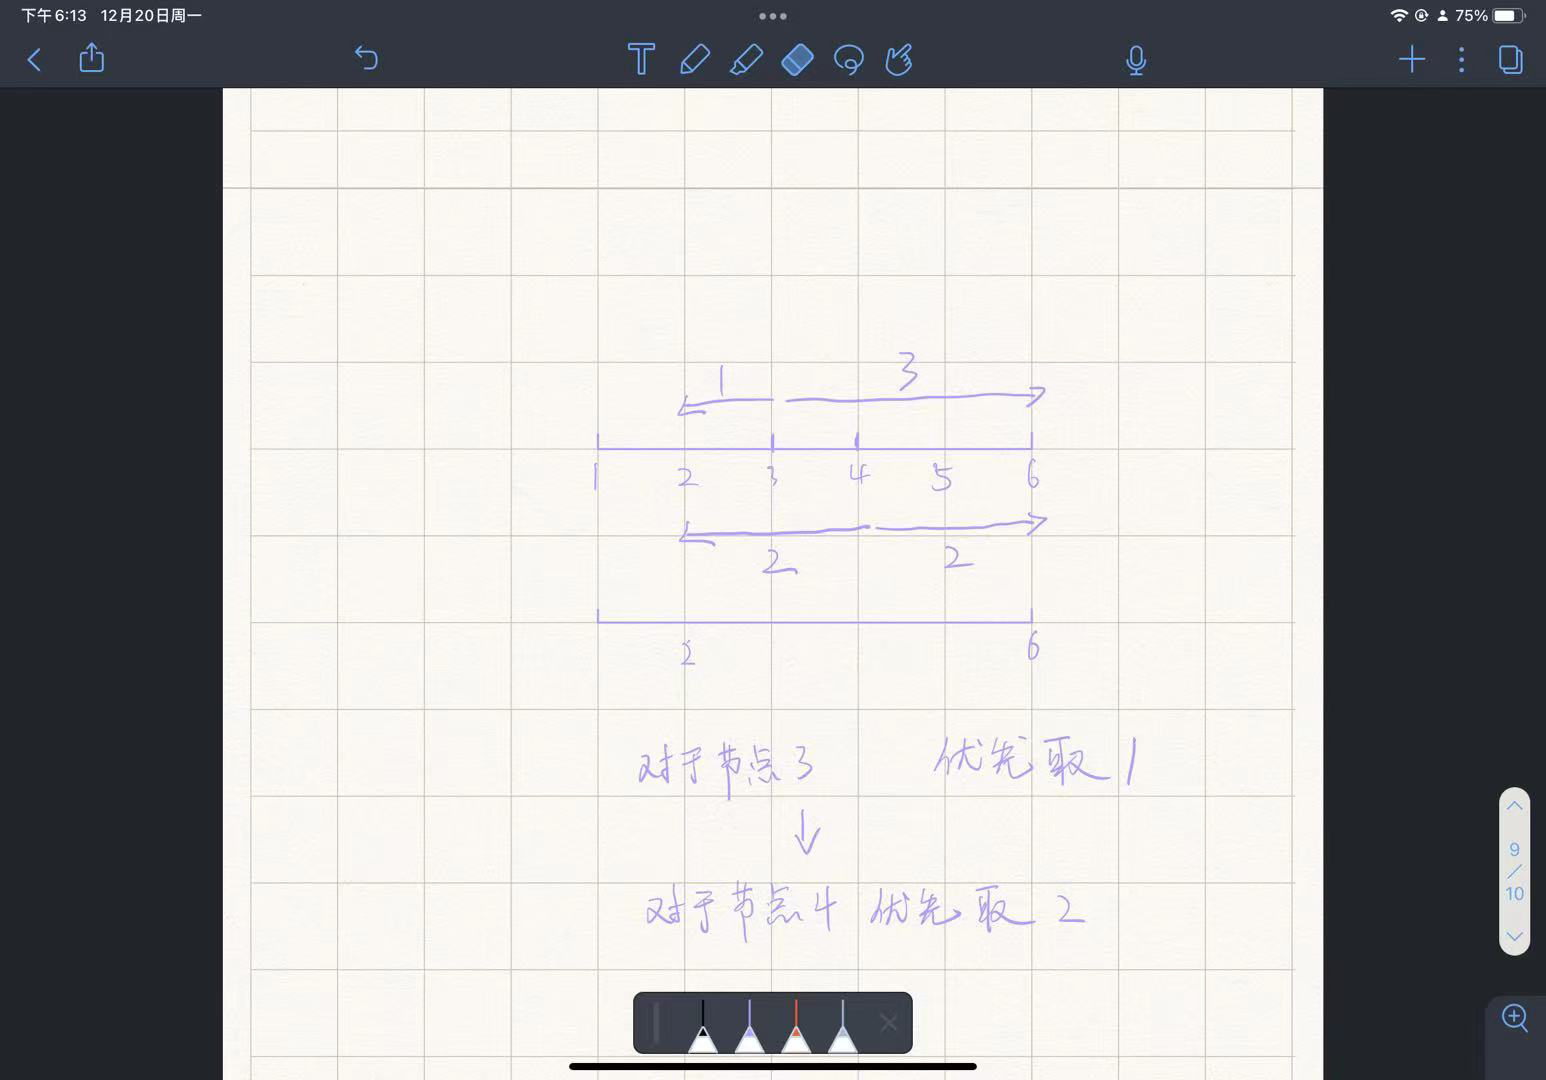 下午6:13 12月20日周一
75%
T
1 3
1 2 3 4 5 6
2 2
2 6
对于节点3 优先取1
对于节点4 优先取2
9
/
10